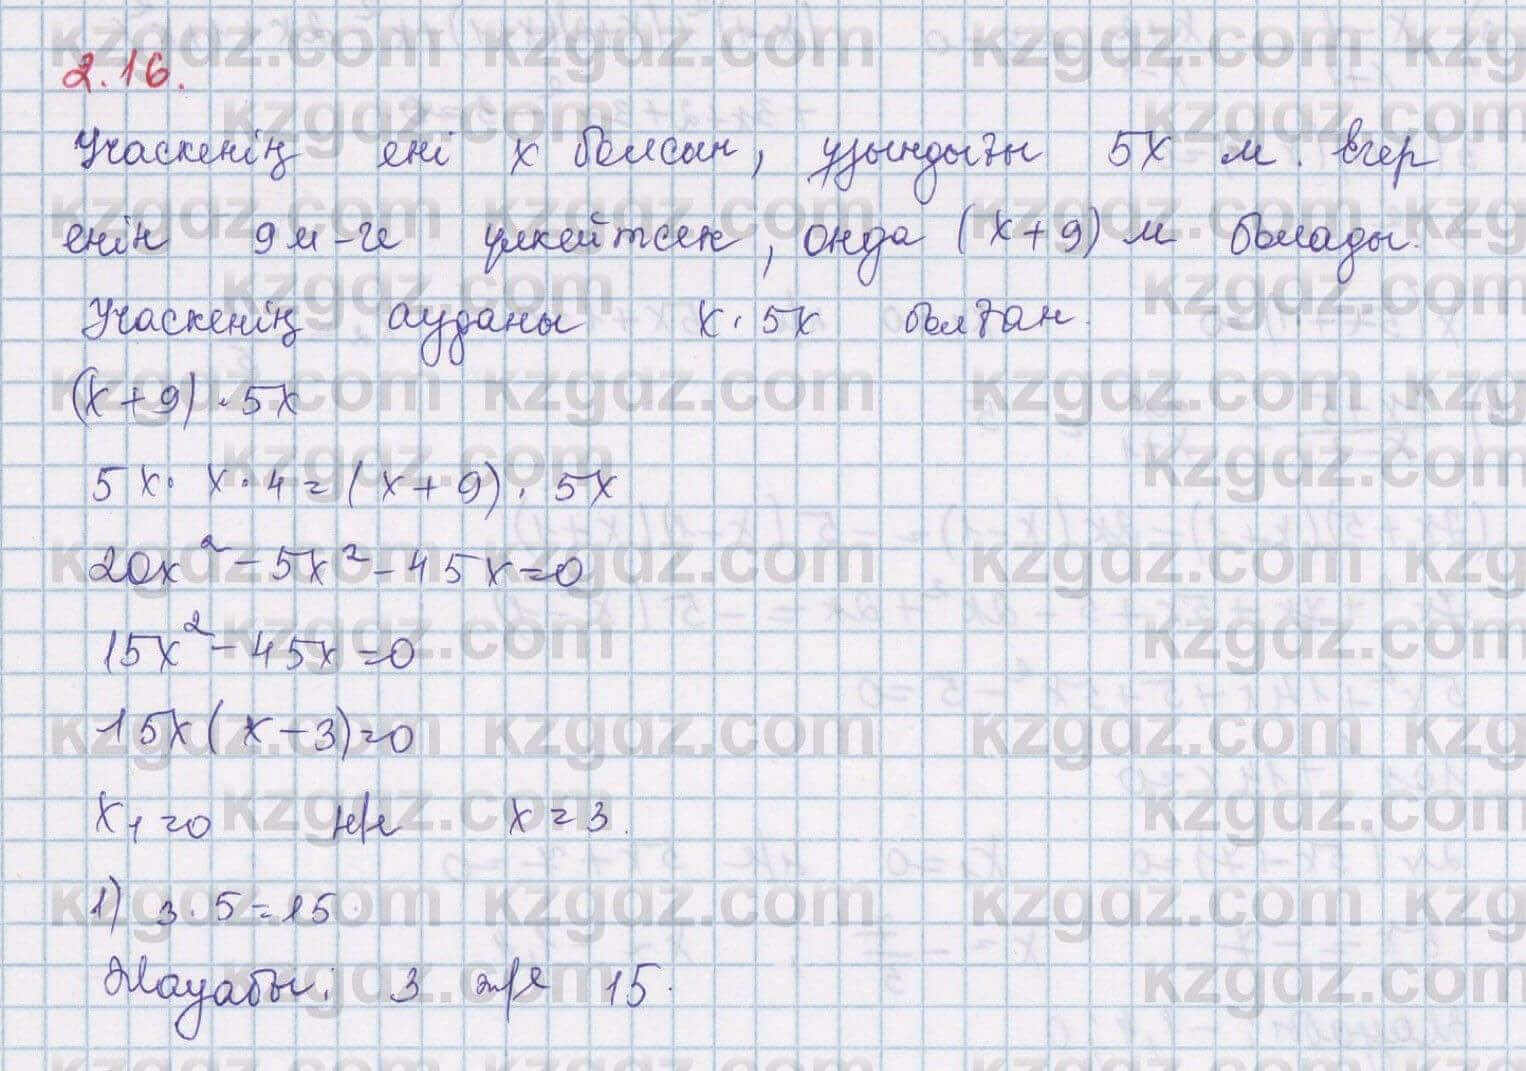 2.16.
Учаскенің ені x болсын, ұзындығы 5x м. Егер
енін 9м-ге үлкейтсек, онда (x+9) м болады.
Учаскенің ауданы x·5x болған.
(x+9)·5x
5x·x·4=(x+9)·5x
20x²-5x²-45x=0
15x²-45x=0
15x(x-3)=0
x₁=0 н/е x=3.
1) 3·5=15.
Жауабы: 3 ж/е 15.
kzgdz.com